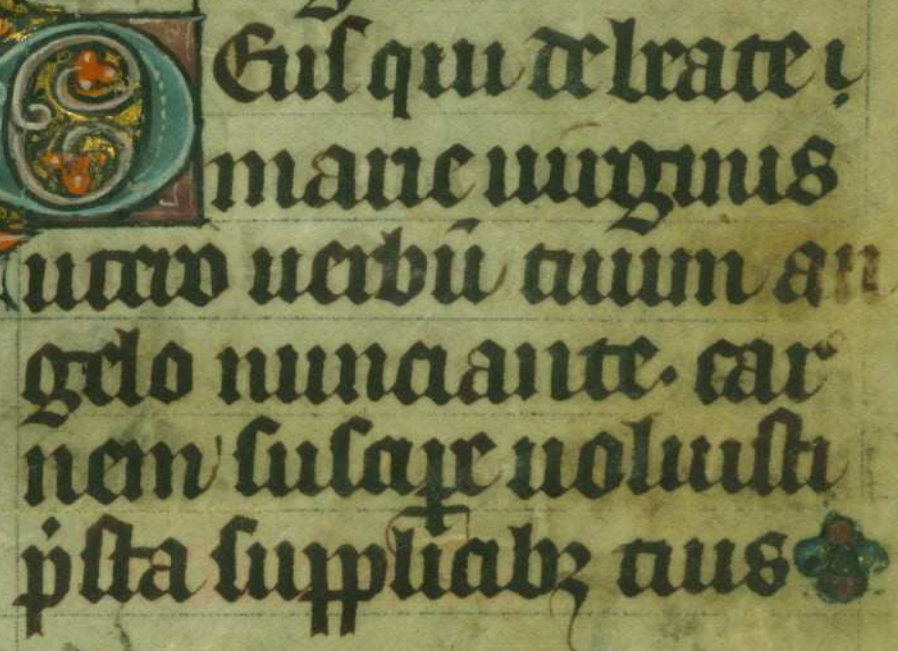 Deus qui de beate
marie uirginis
utero uerbū tuum an
gelo nunciante. car
nem suscip̱e uoluisti
p̄sta supplicibꝫ tuis